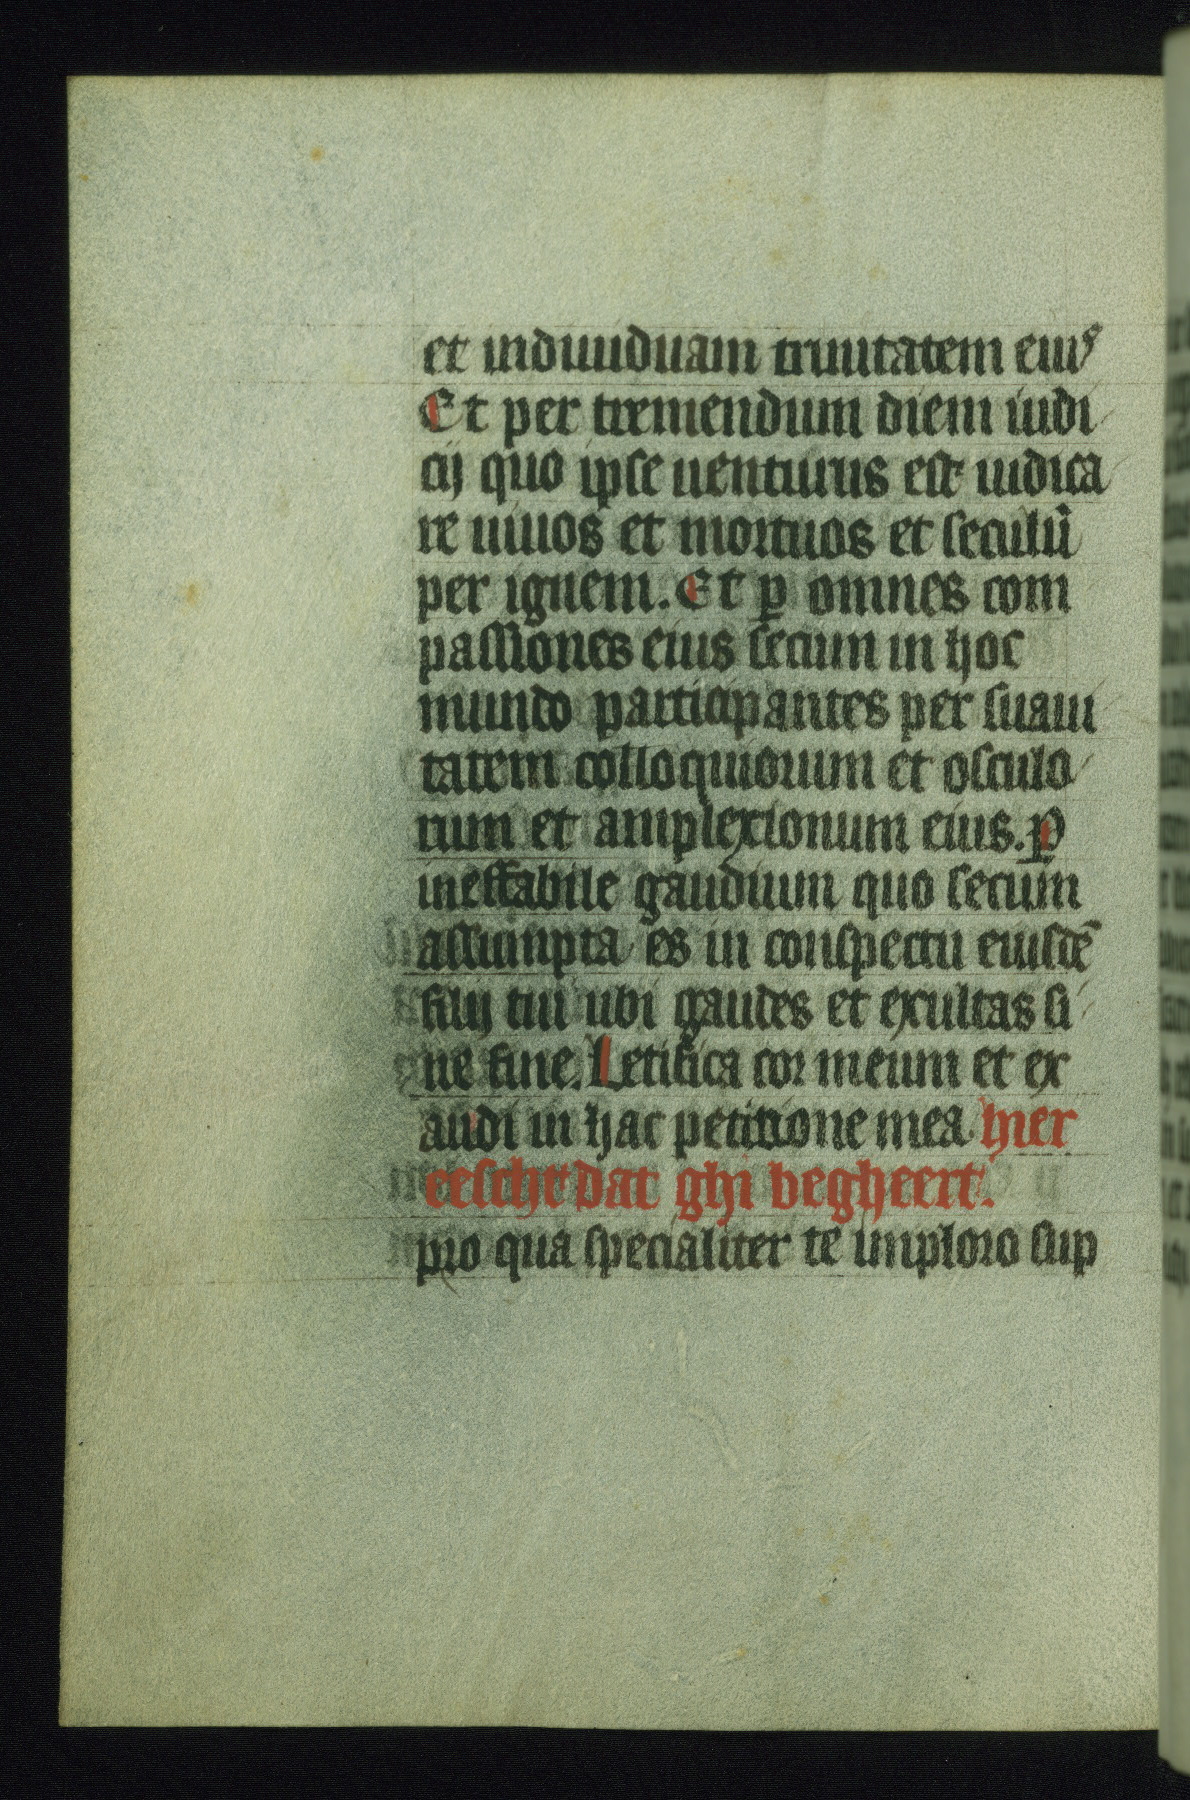 et indiuiduam trinitatem eiuꝰ
Et per tremendum diem iudi
cij quo ipse uenturus est iudica
re uiuos et mortuos et seculū
per ignem. Et ꝑ omnes com
passiones eius secum in hoc
mundo participantes per suaui
tatem colloquiorum et osculo
rum et amplexionum eius. ꝑ
ineffabile gaudium quo secum
assumpta es in conspectu eiusdē
filij tui ubi gaudes et exultas si
ne fine. Letifica cor meum et ex
audi in hac petitione mea hier
eescht dat ghi begheert.
pro qua specialiter te imploro sup